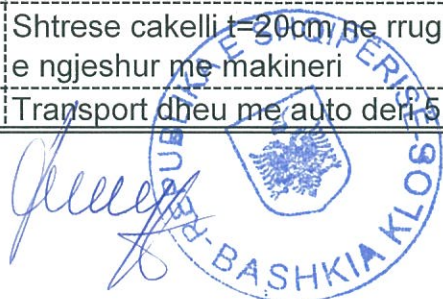 Shtrese cakelli t=20cm ne rrug
e ngjeshur me makineri
Transport dheu me auto deri 5
REPUBLIKA E SHQIPËRISE-
-BASHKIA KLOS